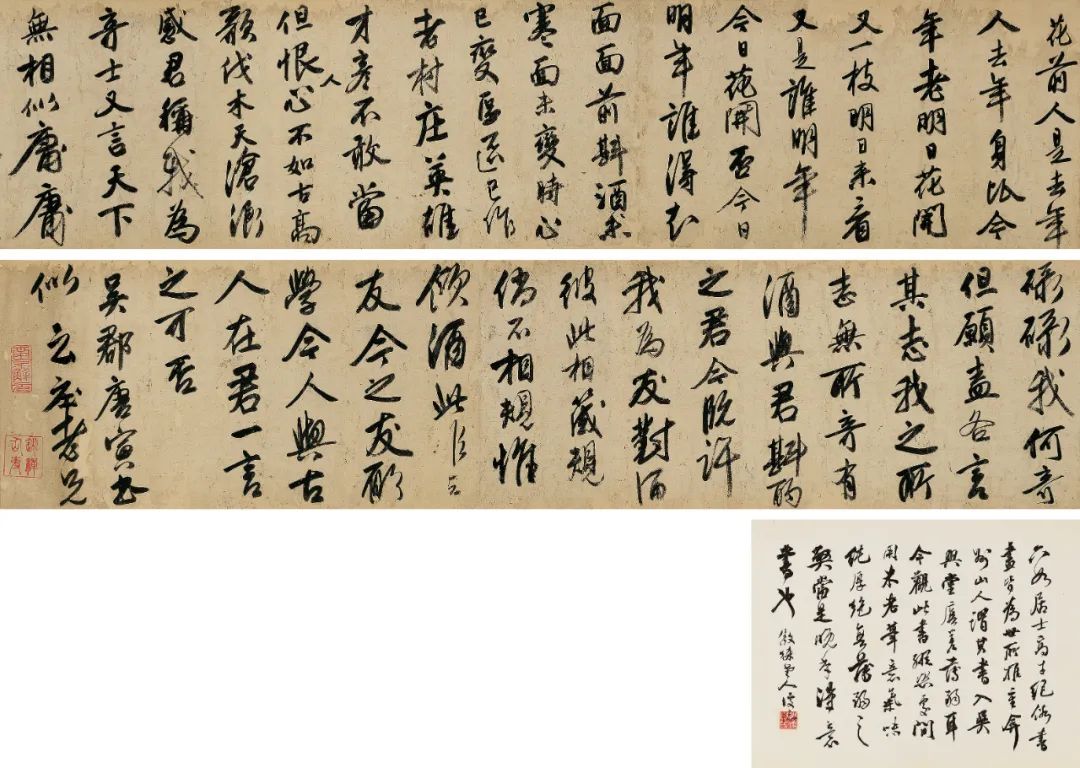 花前人是去年
人去年身比今
年老明日花開
又一枝明日来看
又是誰明年
今日花開否今日
明年誰得知
面面前斟酒未
寒面未變時心
已變區區已作
老村庄英雄
才彦不敢當
但恨人心不如古高
歌伐木天滄浪
感君稱我為
奇士又言天下
無相似庸庸
碌碌我何奇
但願盡各言
其志我之所
志無所奇有
酒與君斟酌
之君今既許
我為友對酒
彼此相箴規
倘不相規惟
傾酒此
友今之友所
學今人與古
人在君一言
之可否
吳郡唐寅書
似老兄
六如居士高才絕俗書
畫皆為世所推重弇
州山人謂其書入吳
興堂廡差薄弱耳
今觀此書縱恣處間
用米老筆意氣味
純厚絕無薄弱之
弊當是晚年得意
書也